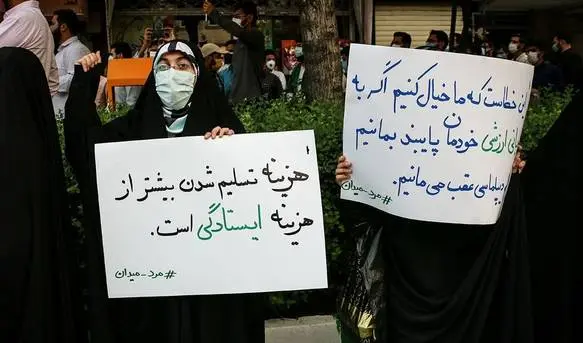 هزینه تسلیم شدن بیشتر از
هزینه ایستادگی است.
#مرد_میدان
خطاست که ما خیال کنیم اگر به
ارزشی خودمان پایبند بمانیم
دیپلماسی عقب می‌مانیم.
#مرد_میدان